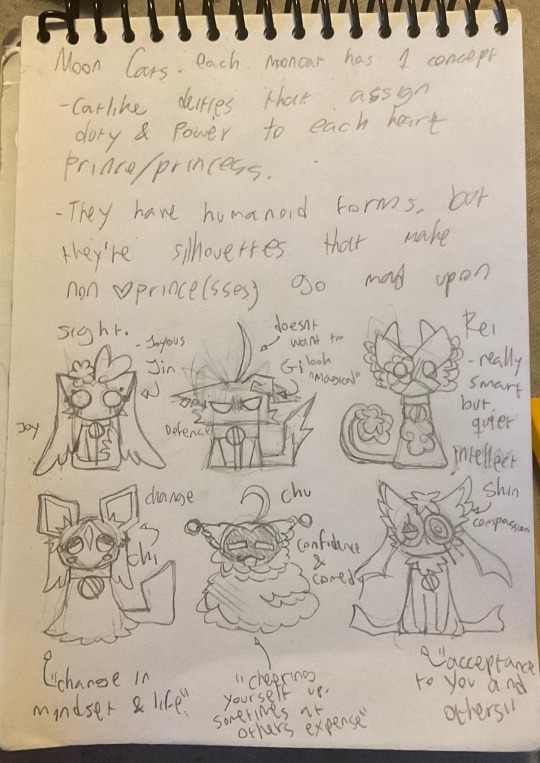 Moon Cats. each mooncat has 1 concept
- Catlike deities that assign
duty & Power to each heart
Prince/princess.
- They have humanoid forms, but
they're silhouettes that make
non ♡prince(sses) go mad upon
sight.
- Joyous
Jin
Joy
doesnt
want to
look
"Magical"
Gi
Defence
Rei
- really
smart
but
quiet
intellect
change
Chi
"change in
mindset & life"
Chu
confidence
& comedy
"cheering
yourself up,
sometimes at
others expense"
Shin
compassion
"acceptance
to you and
others"